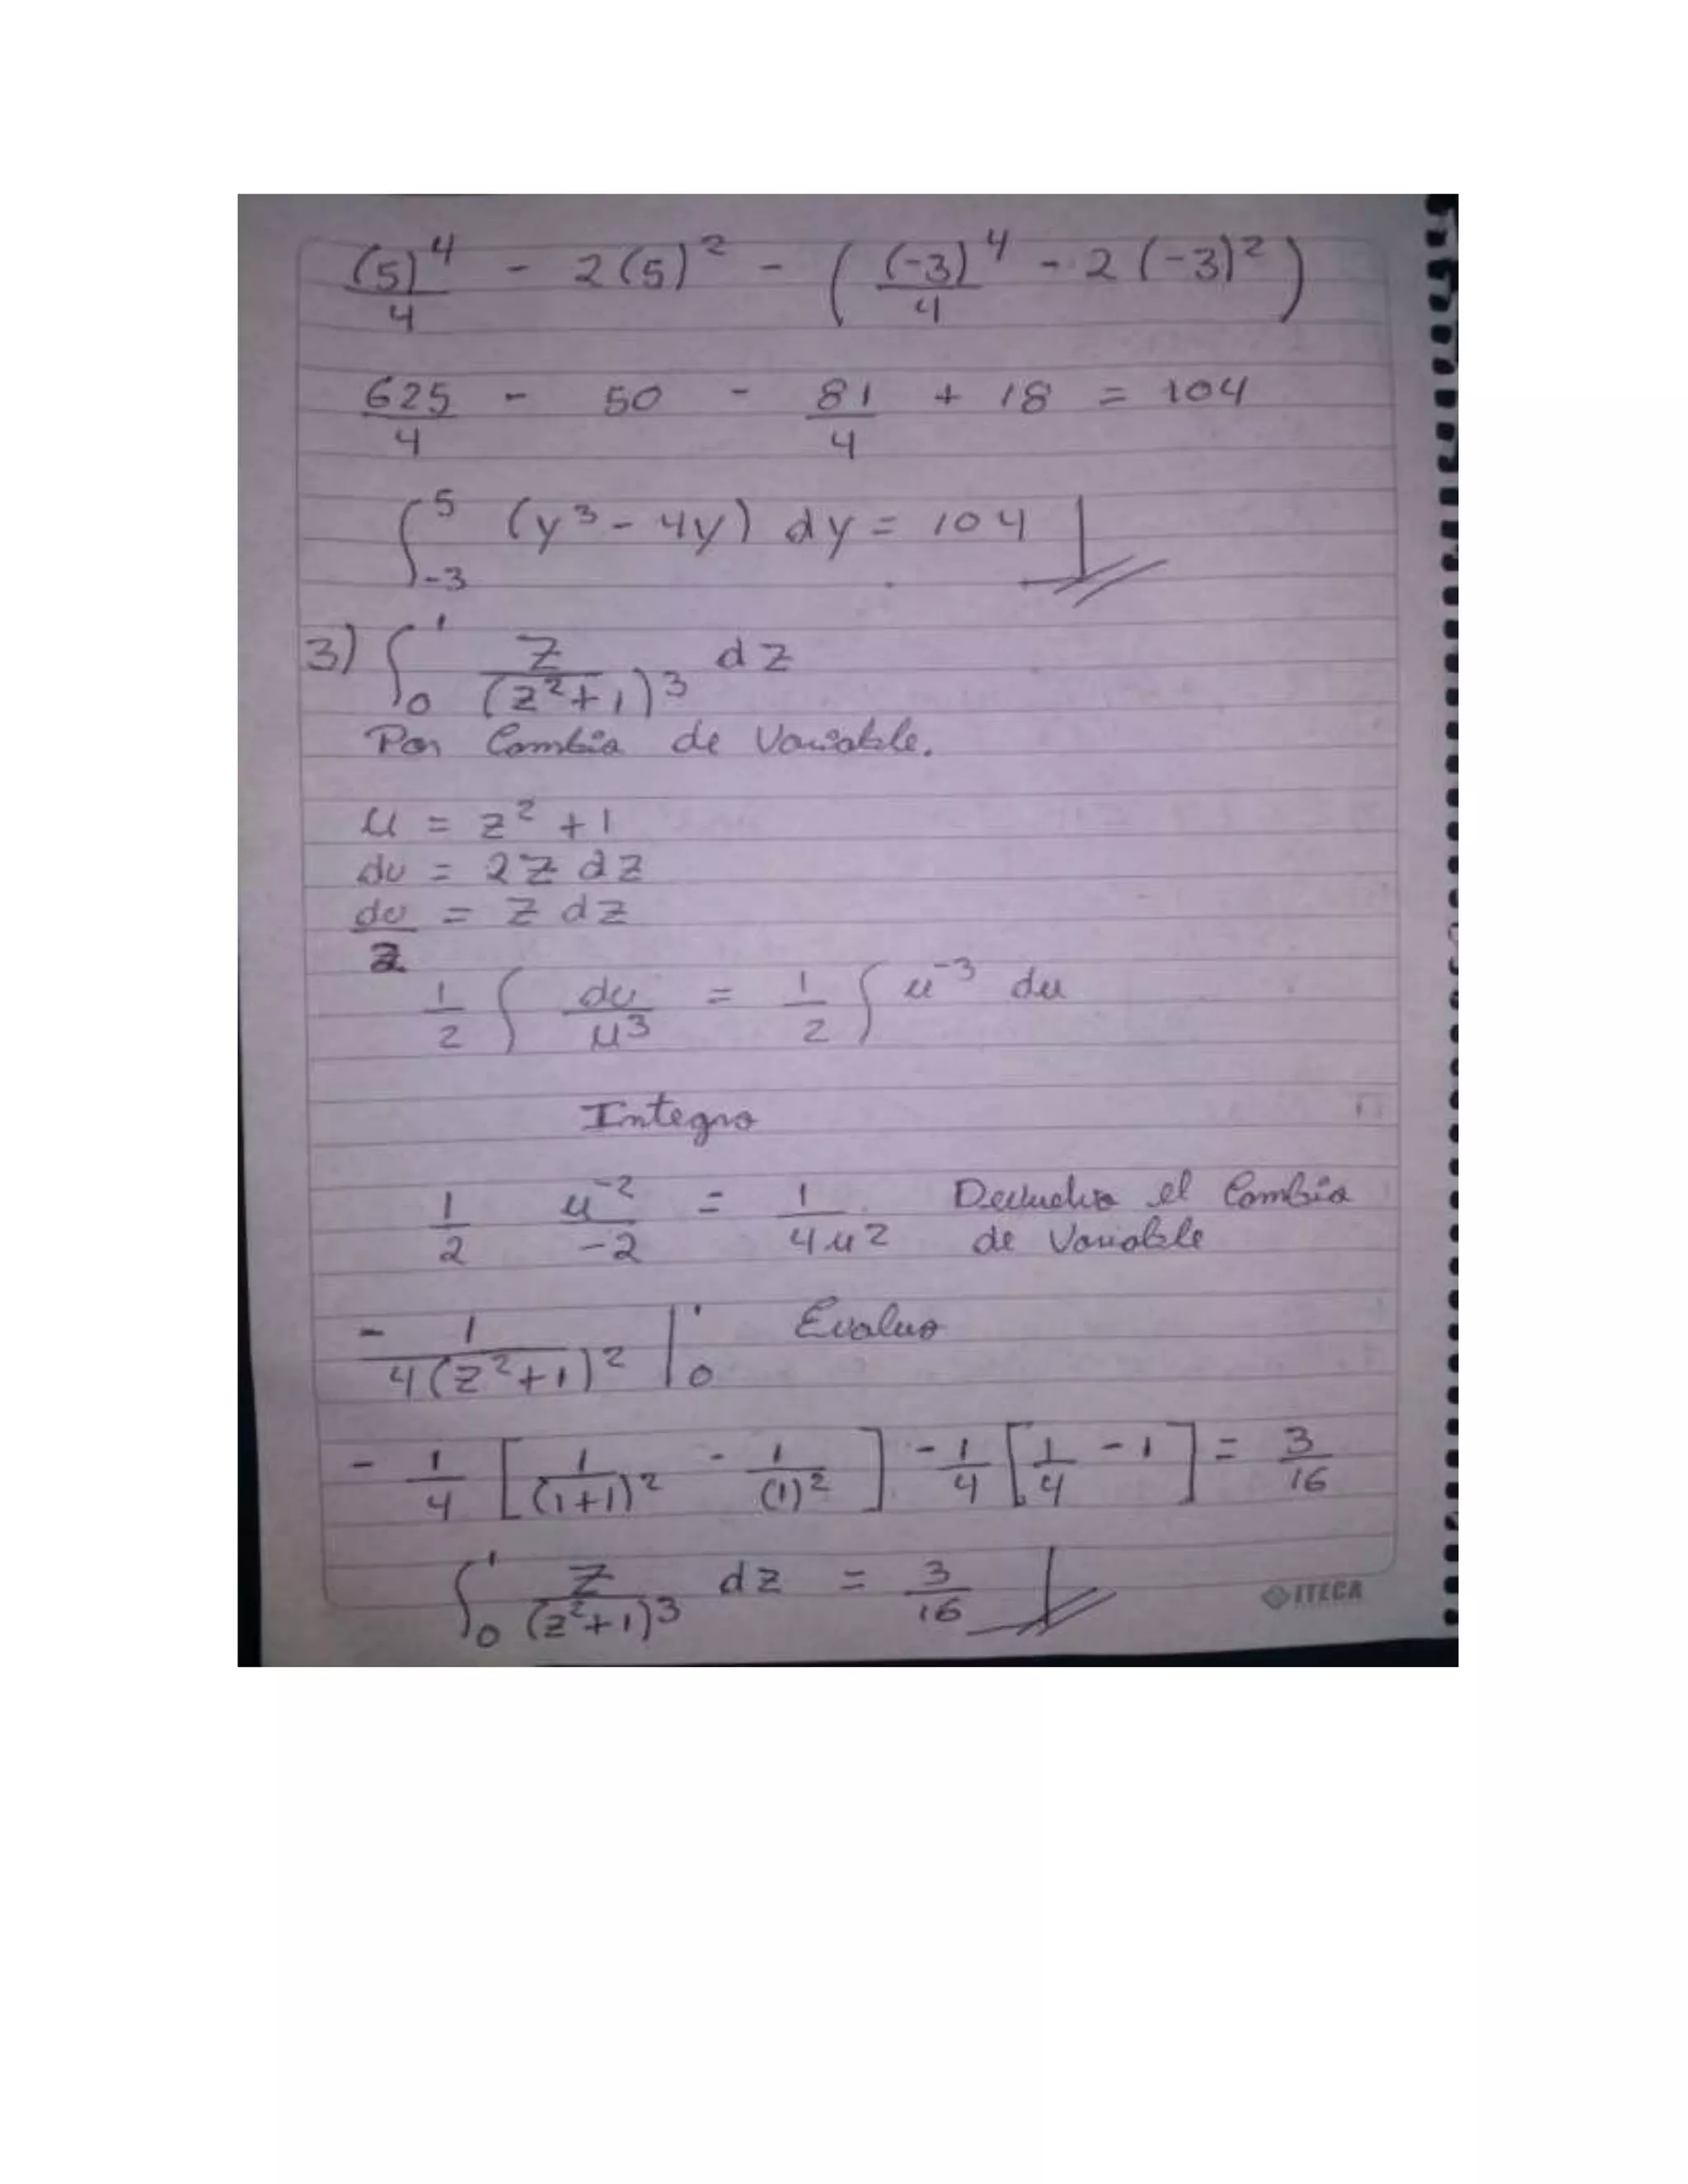 (5)^4/4 - 2(5)^2 - ( (-3)^4/4 - 2(-3)^2 )
625/4 - 50 - 81/4 + 18 = 104
∫_{-3}^{5} (y^3 - 4y) dy = 104
3) ∫_0^1 z/(z^2+1)^3 dz
Por Cambio de Variable.
u = z^2 + 1
du = 2z dz
du/2 = z dz
1/2 ∫ du/u^3 = 1/2 ∫ u^{-3} du
Integro
1/2 u^{-2}/-2 = 1/4u^2 Devuelvo el Cambio
de Variable
- 1/4(z^2+1)^2 |_0^1 Evaluo
- 1/4 [ 1/(1+1)^2 - 1/(1)^2 ] - 1/4 [ 1/4 - 1 ] = 3/16
∫_0^1 z/(z^2+1)^3 dz = 3/16
ITECA